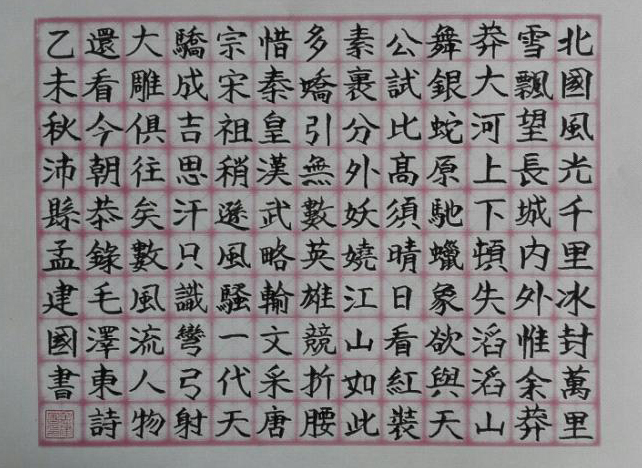 北國風光千里冰封萬里
雪飄望長城内外惟余莽
莽大河上下頓失滔滔山
舞銀蛇原馳蠟象欲與天
公試比髙須晴日看紅裝
素裹分外妖嬈江山如此
多嬌引無數英雄競折腰
惜秦皇漢武略輸文采唐
宗宋祖稍遜風騷一代天
驕成吉思汗只識彎弓射
大雕俱往矣數風流人物
還看今朝恭錄毛澤東詩
乙未秋沛縣孟建國書